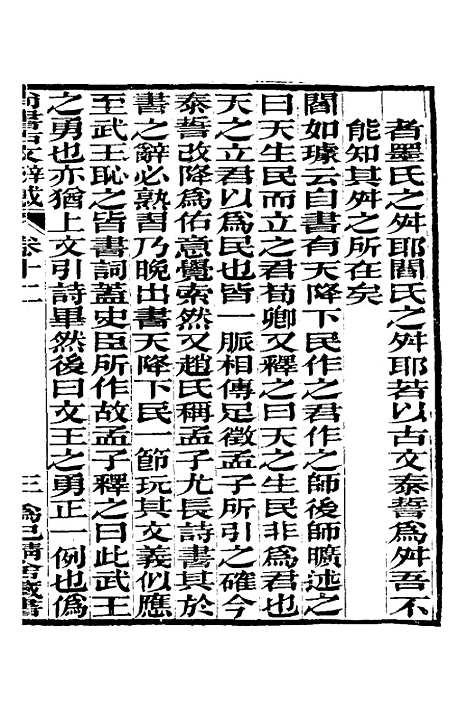 者墨氏之舛耶閻氏之舛耶若以古文泰誓爲舛吾不
能知其舛之所在矣
閻如璩云自書有天降下民作之君作之師後師曠述之
曰天生民而立之君荀卿又釋之曰天之生民非爲君也
天之立君以爲民也皆一脈相傳足徵孟子所引之確今
泰誓改降爲佑意覺索然又趙氏稱孟子尤長詩書其於
書之辭必熟習乃晚出書天降下民一節玩其文義似應
至武王恥之皆書詞蓋史臣所作故孟子釋之曰此武王
之勇也亦猶上文引詩畢然後曰文王之勇正一例也僞
尚書古文辨惑 卷十二 三 爲己精舍藏書